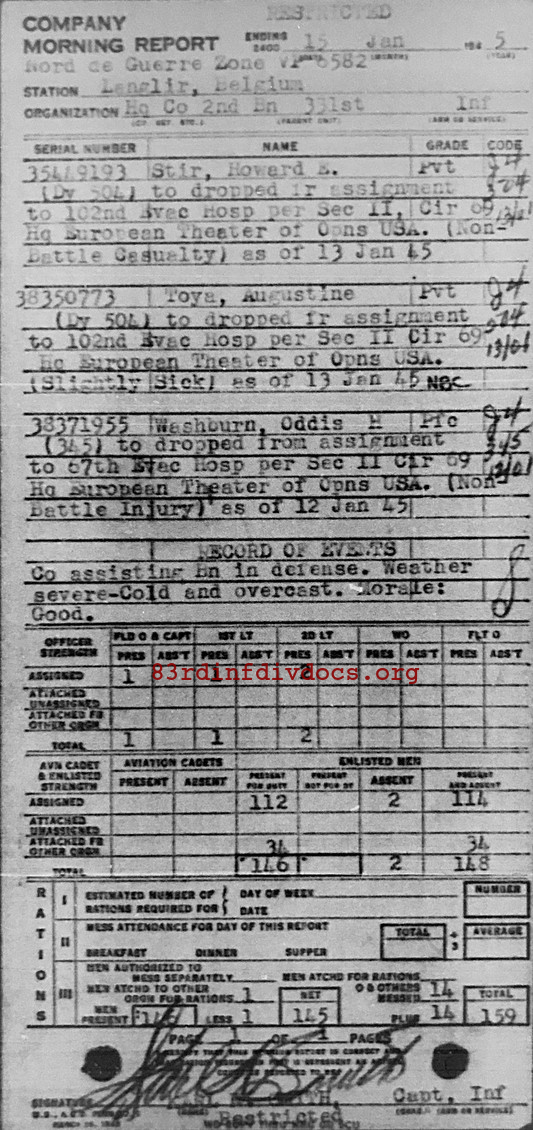 RESTRICTED
COMPANY
MORNING REPORT ENDING 2400 15 Jan 194 5
Nord de Guerre Zone VP 6582
STATION Langlir, Belgium
ORGANIZATION Hq Co 2nd Bn 331st Inf
SERIAL NUMBER NAME GRADE CODE
35449193 Stir, Howard E. Pvt
(Dy 504) to dropped fr assignment
to 102nd Evac Hosp per Sec II, Cir 69
Hq European Theater of Opns USA. (Non-
Battle Casualty) as of 13 Jan 45
38350773 Toya, Augustine Pvt
(Dy 504) to dropped fr assignment
to 102nd Evac Hosp per Sec II Cir 69
Hq European Theater of Opns USA.
(Slightly Sick) as of 13 Jan 45 NBC
38371955 Washburn, Oddis H Pfc
(345) to dropped from assignment
to 67th Evac Hosp per Sec II Cir 69
Hq European Theater of Opns USA. (Non-
Battle Injury) as of 12 Jan 45
RECORD OF EVENTS
Co assisting Bn in defense. Weather
severe-Cold and overcast. Morale:
Good.
OFFICER STRENGTH FLD O & CAPT 1ST LT 2D LT WO FLT O
PRES ABS'T PRES ABS'T PRES ABS'T PRES ABS'T PRES ABS'T
ASSIGNED 1 1 2
83rdinfdivdocs.org
ATTACHED UNASSIGNED
ATTACHED FR OTHER ORGN
TOTAL 1 1 2
AVN CADET & ENLISTED STRENGTH AVIATION CADETS ENLISTED MEN
PRESENT ABSENT PRESENT FOR DUTY PRESENT NOT FOR DY ABSENT PRESENT AND ABSENT
ASSIGNED 112 2 114
ATTACHED UNASSIGNED
ATTACHED FR OTHER ORGN 34 34
TOTAL 146 2 148
RATIONS
I ESTIMATED NUMBER OF DAY OF WEEK NUMBER
RATIONS REQUIRED FOR DATE
II MESS ATTENDANCE FOR DAY OF THIS REPORT TOTAL ÷ 3 AVERAGE
BREAKFAST DINNER SUPPER
III MEN AUTHORIZED TO MESS SEPARATELY MEN ATCHD FOR RATIONS
MEN ATCHD TO OTHER ORGN FOR RATIONS 1 NET O & OTHERS MESSED 14 TOTAL
MEN PRESENT 146 LESS 1 145 PLUS 14 159
PAGE 1 OF 1 PAGES
SIGNATURE Capt, Inf
Restricted